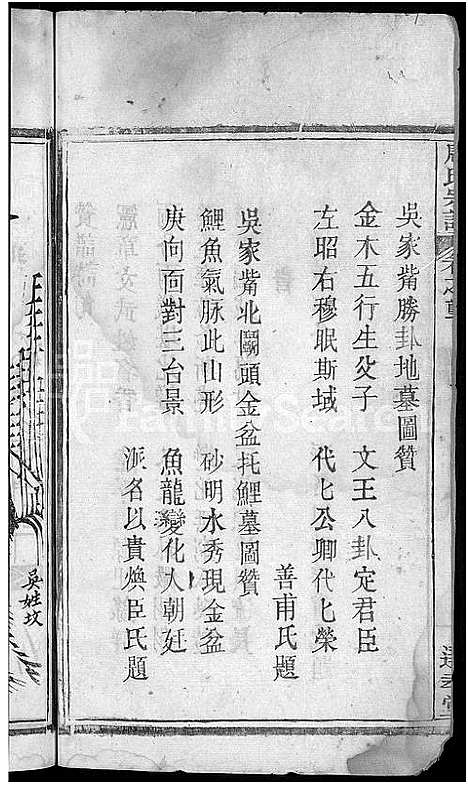 吳家觜勝卦地墓圖贊
金木五行生父子　文王八卦定君臣
左昭右穆眠斯域　代匕公卿代匕榮
善甫氏題
吳家觜北關頭金盆托鯉墓圖贊
鯉魚氣脉此山形　砂明水秀現金盆
庚向面對三台景　魚龍變化入朝廷
派名以貴煥臣氏題
吳姓坟